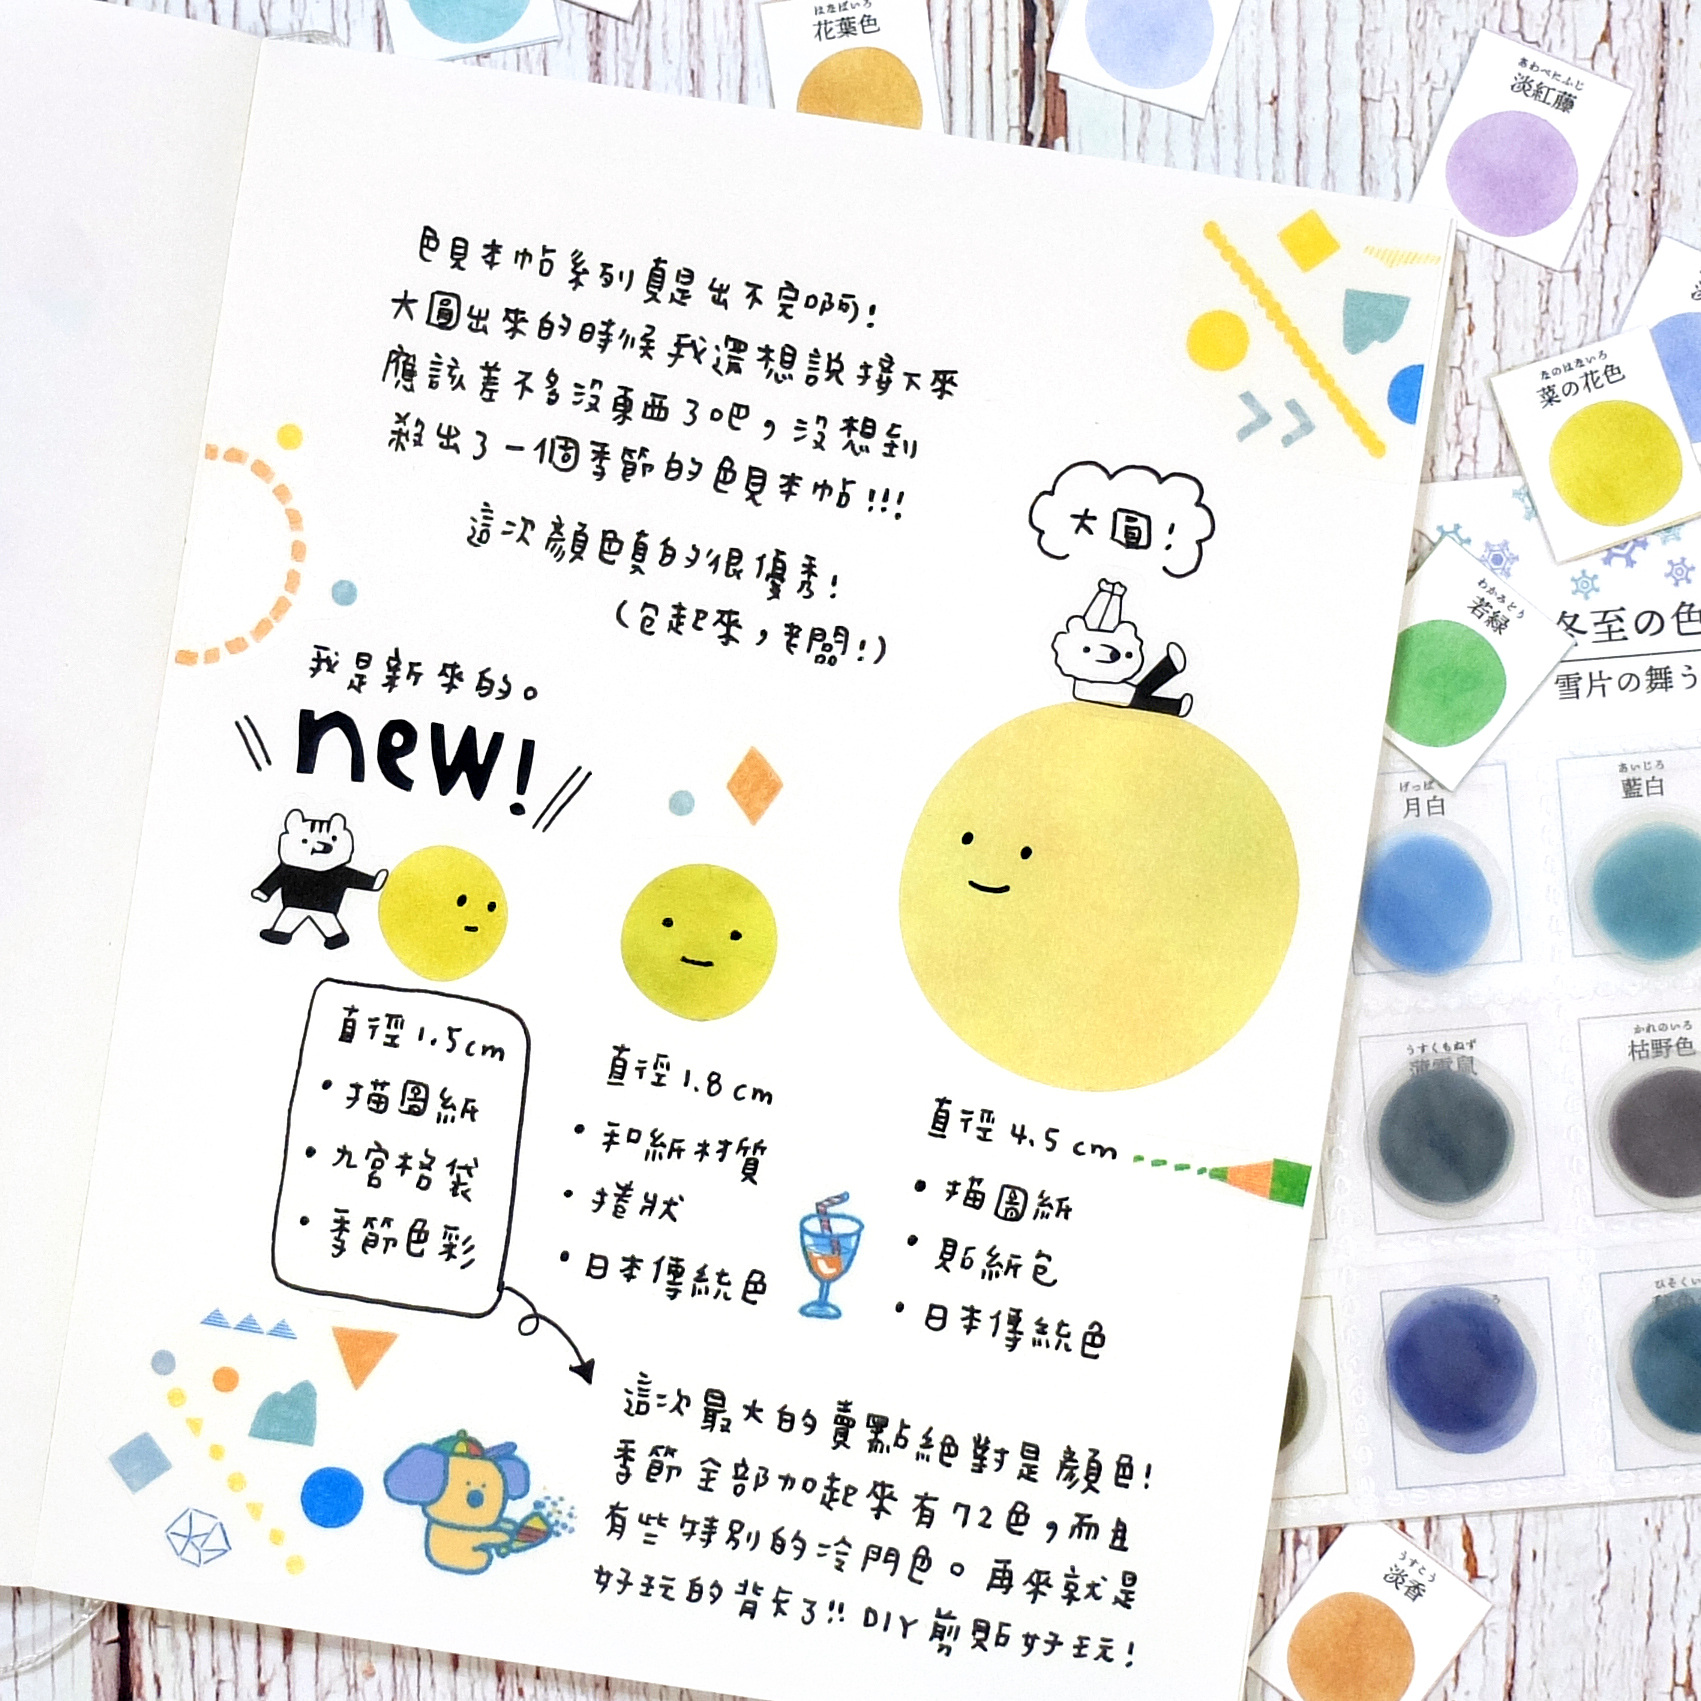 はなばいろ
花葉色
あわべにふじ
淡紅藤
なのはないろ
菜の花色
わかみどり
若緑
冬至の色
雪片の舞う
月白
あいじろ
藍白
うすくもねず
かれのいろ
枯野色
うすこう
淡香
色見本帖系列真是出不完啊!
大圓出來的時候我還想說接下來
應該差不多沒東西了吧，沒想到
殺出了一個季節的色見本帖!!!
這次顏色真的很優秀!
(包起來，老闆!)
大圓!
我是新來的。
new!
直徑1.5cm
•描圖紙
•九宮格袋
•季節色彩
直徑1.8cm
•和紙材質
•捲狀
•日本傳統色
直徑4.5cm
•描圖紙
•貼紙包
•日本傳統色
這次最大的賣點絕對是顏色!
季節全部加起來有72色，而且
有些特別的冷門色。再來就是
好玩的背卡了!! DIY剪貼好玩!